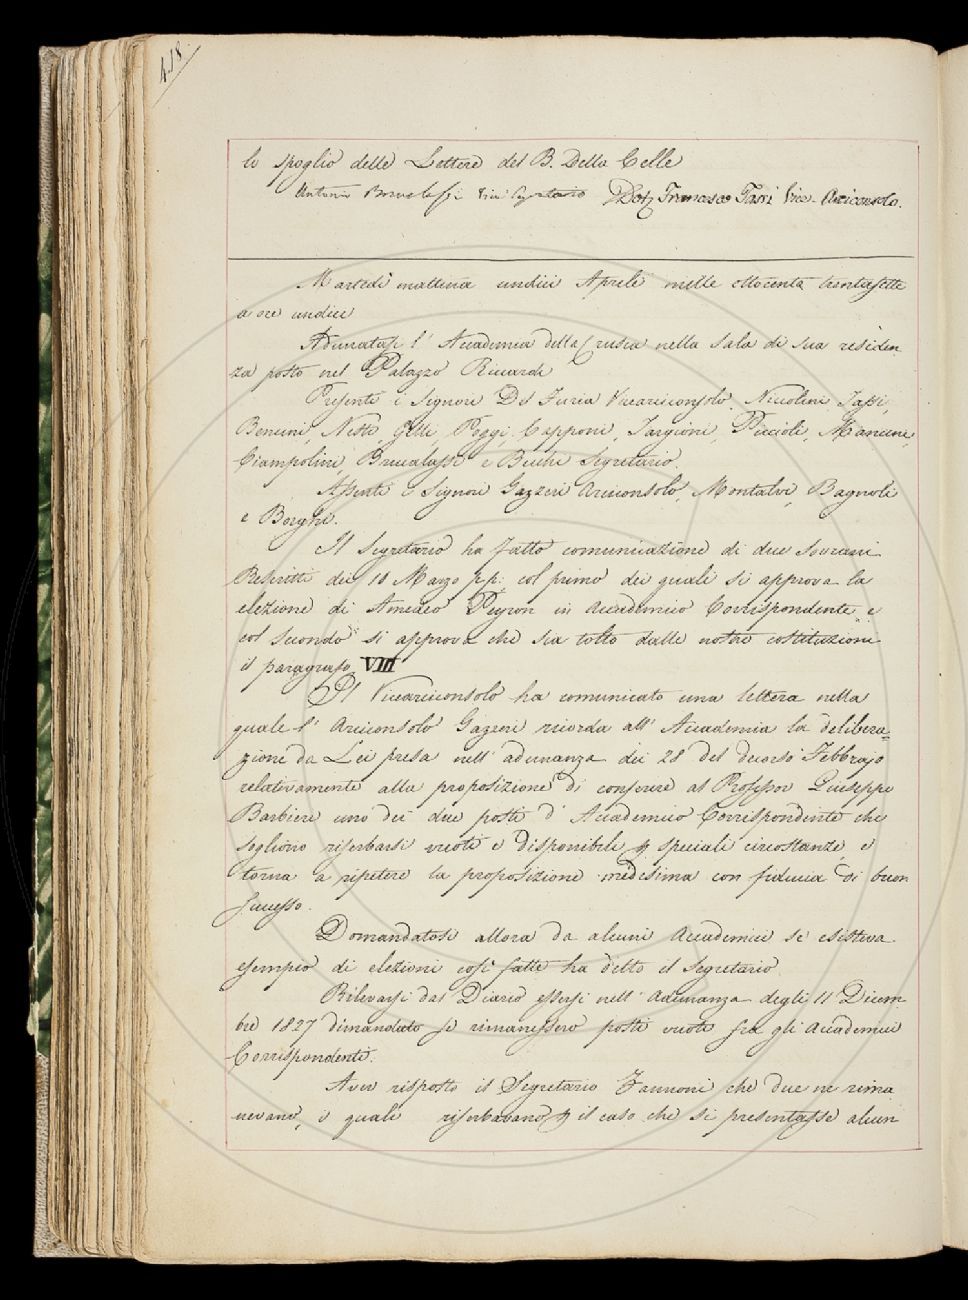 418.
lo spoglio delle Lettere del B. Dalle Celle
Antonio Bruclassi Vice Segretario Dott. Francesco Tassi Vice-Arciconsolo.
Martedì mattina undici Aprile mille ottocento trentasette
a ore undici
Adunatasi l'Accademia della Crusca nella Sala di sua residen
za posta nel Palazzo Riccardi
Presenti i Signori Del Furia Vicearciconsolo, Niccolini, Tassi,
Bencini, Nesti, Gelli, Poggi, Capponi, Targioni, Piccioli, Mancini,
Ciampolini, Brucalassi e Becchi Segretario.
Assenti i Signori Gazzeri Arciconsolo, Montalvi, Bagnoli
e Borghi.
Il Segretario ha fatto comunicazione di due Sovrani
Rescritti dei 10 Marzo p.p: col primo dei quali si approva la
elezione di Amedeo Peyron in Accademico Corrispondente e
col secondo si approva che sia tolto dalle nostre costituzioni
il paragrafo VIII
Il Vicearciconsolo ha comunicato una lettera nella
quale l'Arciconsolo Gazzeri ricorda all'Accademia la delibera=
zione da Lei presa nell'adunanza dei 28 del decorso Febbrajo
relativamente alla proposizione di conferire al Professor Giuseppe
Barbieri uno dei due posti d'Accademico Corrispondente che
sogliono riserbarsi vuoti e disponibili p speciali circostanze, e
torna a ripetere la proposizione medesima con fiducia di buon
successo.
Domandatosi allora da alcuni Accademici se esisteva
esempio di elezioni così fatte ha detto il Segretario
Rilevarsi dal Diario essersi nell'Adunanza degli 11 Dicem
bre 1827 dimandato se rimanessero posti vuoti fra gli Accademici
Corrispondenti.
Aver risposto il Segretario Zannoni che due ne rima
nevano, i quali riserbavano p il caso che si presentasse alcun